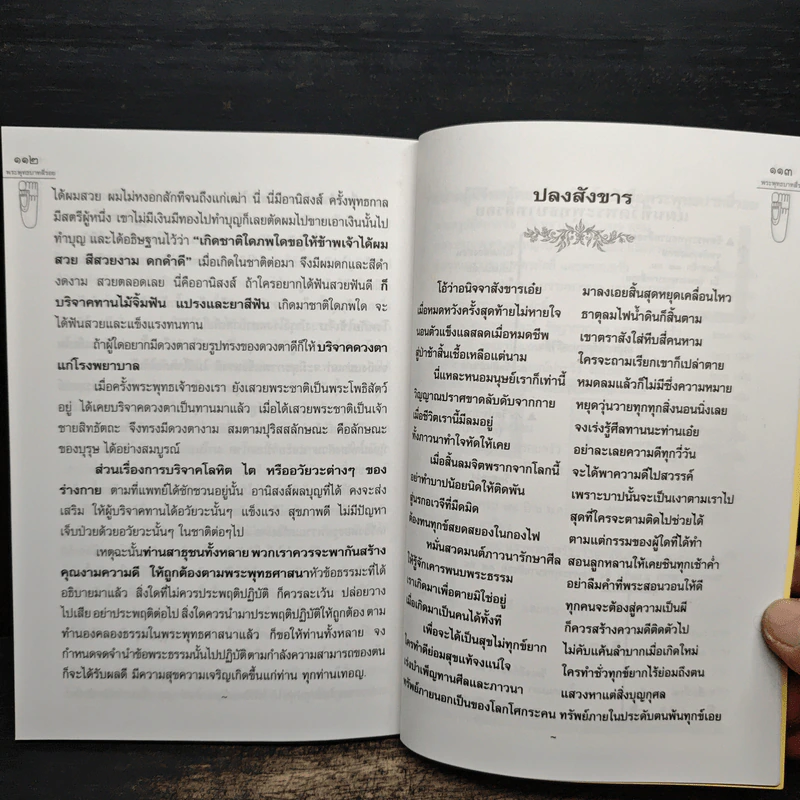 ๑๑๒
พระพุทธบาทสี่รอย
ได้ผมสวย ผมไม่หงอกสักทีจนถึงแก่เฒ่า นี่ นี่มีอานิสงส์ ครั้งพุทธกาล
มีสตรีผู้หนึ่ง เขาไม่มีเงินมีทองไปทำบุญก็เลยตัดผมไปขายเอาเงินนั้นไป
ทำบุญ และได้อธิษฐานไว้ว่า “เกิดชาติใดภพใดขอให้ข้าพเจ้าได้ผม
สวย สีสวยงาม ดกดำดี” เมื่อเกิดในชาติต่อมา จึงมีผมดกและสีดำ
งดงาม สวยตลอดเลย นี่คืออานิสงส์ ถ้าใครอยากได้ฟันสวยฟันดี ก็
บริจาคทานไม้จิ้มฟัน แปรงและยาสีฟัน เกิดมาชาติใดภพใด จะ
ได้ฟันสวยและแข็งแรงทนทาน
ถ้าผู้ใดอยากมีดวงตาสวยรูปทรงของดวงตาดีก็ให้บริจาคดวงตา
แก่โรงพยาบาล
เมื่อครั้งพระพุทธเจ้าของเรา ยังเสวยพระชาติเป็นพระโพธิสัตว์
อยู่ ได้เคยบริจาคดวงตาเป็นทานมาแล้ว เมื่อได้เสวยพระชาติเป็นเจ้า
ชายสิทธัตถะ จึงทรงมีดวงตางาม สมตามปุริสสลักษณะ คือลักษณะ
ของบุรุษ ได้อย่างสมบูรณ์
ส่วนเรื่องการบริจาคโลหิต ไต หรืออวัยวะต่างๆ ของ
ร่างกาย ตามที่แพทย์ได้ชักชวนอยู่นั้น อานิสงส์ผลบุญที่ได้ คงจะส่ง
เสริม ให้ผู้บริจาคทานได้อวัยวะนั้นๆ แข็งแรง สุขภาพดี ไม่มีปัญหา
เจ็บป่วยด้วยอวัยวะนั้นๆ ในชาติต่อๆไป
เหตุฉะนั้นท่านสาธุชนทั้งหลาย พวกเราควรจะพากันสร้าง
คุณงามความดี ให้ถูกต้องตามพระพุทธศาสนาหัวข้อธรรมะที่ได้
อธิบายมาแล้ว สิ่งใดที่ไม่ควรประพฤติปฏิบัติ ก็ควรละเว้น ปล่อยวาง
ไปเสีย อย่าประพฤติต่อไป สิ่งใดควรนำมาประพฤติปฏิบัติให้ถูกต้อง ตาม
ทำนองคลองธรรมในพระพุทธศาสนาแล้ว ก็ขอให้ท่านทั้งหลาย จง
กำหนดจดจำนำข้อพระธรรมนั้นไปปฏิบัติตามกำลังความสามารถของตน
ก็จะได้รับผลดี มีความสุขความเจริญเกิดขึ้นแก่ท่าน ทุกท่านเทอญ.
๑๑๓
ปลงสังขาร
โอ้ว่าอนิจจาสังขารเอ๋ย มาลงเอยสิ้นสุดหยุดเคลื่อนไหว
เมื่อหมดหวังครั้งสุดท้ายไม่หายใจ ธาตุลมไฟน้ำดินก็สิ้นตาม
นอนตัวแข็งแลสลดเมื่อหมดชีพ เขาตราสังใส่หีบสี่คนหาม
สู่ป่าช้าสิ้นเชื้อเหลือแต่นาม ใครจะถามเรียกเขาก็เปล่าตาย
นี่แหละหนอมนุษย์เราก็เท่านี้ หมดลมแล้วก็ไม่มีซึ่งความหมาย
วิญญาณปราศขาดลับดับจากกาย หยุดวุ่นวายทุกทุกสิ่งนอนนิ่งเลย
เมื่อชีวิตเรานี้มีลมอยู่ จงเร่งรู้ศีลทานนะท่านเอ๋ย
ทั้งภาวนาทำใจหัดให้เคย อย่าละเลยความดีทุกวี่วัน
เมื่อสิ้นลมจิตพรากจากโลกนี้ จะได้พาความดีไปสวรรค์
อย่าทำบาปน้อยนิดให้ติดพัน เพราะบาปนั้นจะเป็นเงาตามเราไป
สู่นรกอเวจีที่มืดมิด สุดที่ใครจะตามติดไปช่วยได้
ต้องทนทุกข์สยดสยองในกองไฟ ตามแต่กรรมของผู้ใดที่ได้ทำ
หมั่นสวดมนต์ภาวนารักษาศีล สอนลูกหลานให้เคยชินทุกเช้าค่ำ
ให้รู้จักเคารพนบพระธรรม อย่าลืมคำที่พระสอนวอนให้ดี
เราเกิดมาเพื่อตายมิใช่อยู่ ทุกคนจะต้องสู่ความเป็นผี
เมื่อเกิดมาเป็นคนได้ทั้งที ก็ควรสร้างความดีติดตัวไป
เพื่อจะได้เป็นสุขไม่ทุกข์ยาก ไม่คับแค้นลำบากเมื่อเกิดใหม่
ใครทำดีย่อมสุขแท้จงแน่ใจ ใครทำชั่วทุกข์ยากไร้ย้อมถึงตน
เร่งบำเพ็ญทานศีลและภาวนา แสวงหาแต่สิ่งบุญกุศล
ทรัพย์ภายนอกเป็นของโลกโศกระคน ทรัพย์ภายในประดับตนพ้นทุกข์เอย